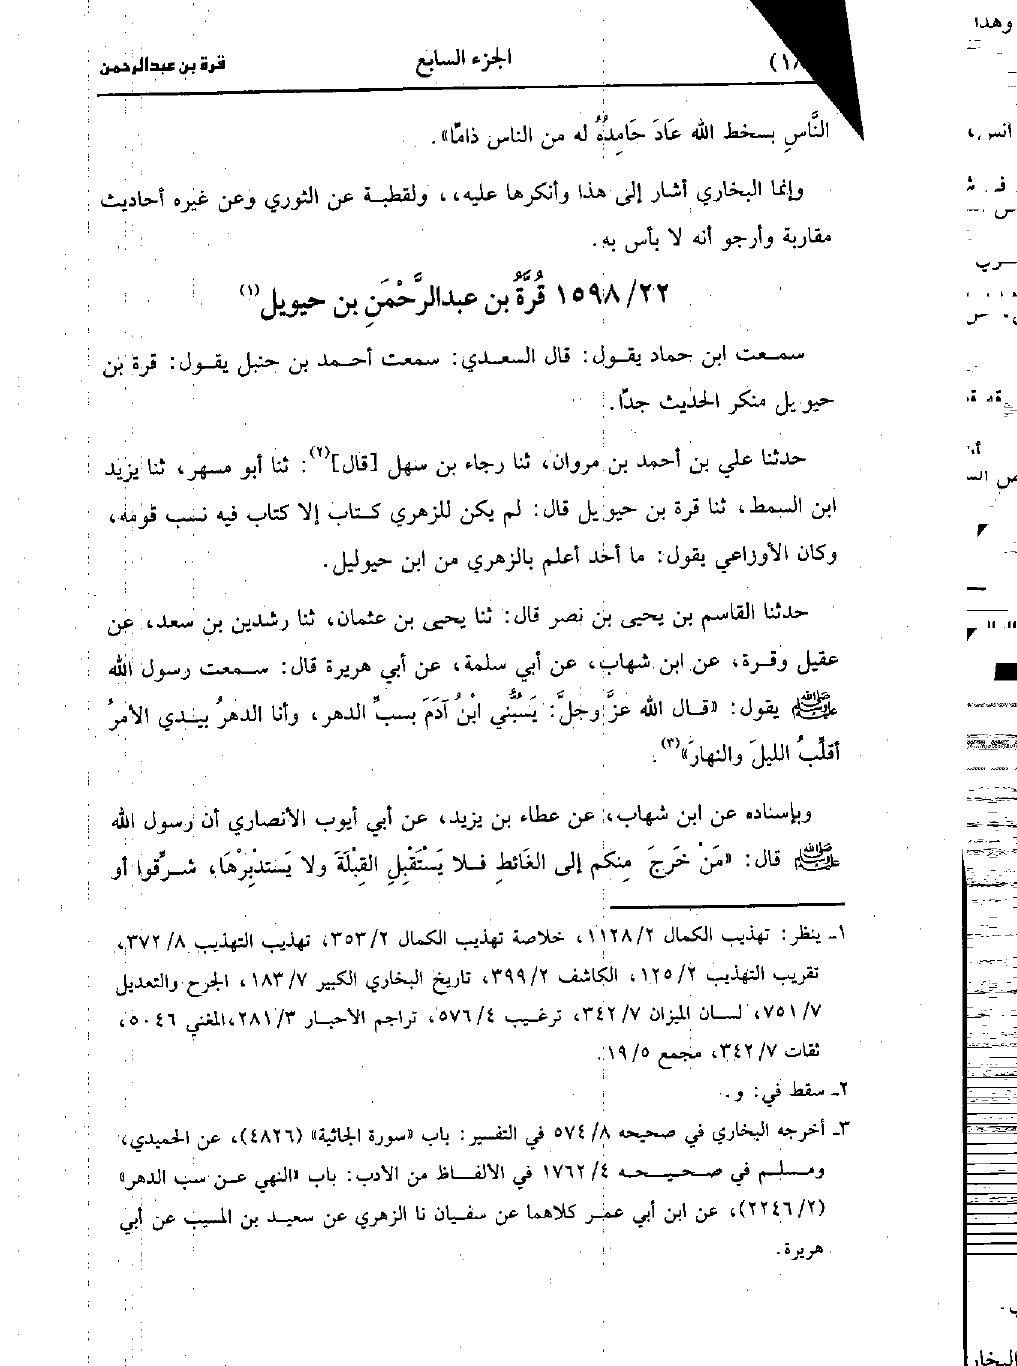 الجزء السابع
قرة بن عبدالرحمن
النَّاسِ بسخط الله عَادَ حَامِدُهُ له من الناس ذامًا».
وإنما البخاري أشار إلى هذا وأنكرها عليه،، ولقطبة عن الثوري وعن غيره أحاديث
مقاربة وأرجو أنه لا بأس به.
١٥٩٨/٢٢ قُرَّةُ بن عبدالرَّحْمَنِ بن حيويل(١)
سمعت ابن حماد يقول: قال السعدي: سمعت أحمد بن حنبل يقول: قرة بن
حيويل منكر الحديث جدًّا.
حدثنا علي بن أحمد بن مروان، ثنا رجاء بن سهل [قال](٢): ثنا أبو مسهر، ثنا يزيد
ابن السمط، ثنا قرة بن حيويل قال: لم يكن للزهري كتاب إلا كتاب فيه نسب قومه،
وكان الأوزاعي يقول: ما أحد أعلم بالزهري من ابن حيوليل.
حدثنا القاسم بن يحيى بن نصر قال: ثنا يحيى بن عثمان، ثنا رشدين بن سعد، عن
عقيل وقرة، عن ابن شهاب، عن أبي سلمة، عن أبي هريرة قال: سمعت رسول الله
ﷺ يقول: «قال الله عزَّ وجلَّ: يَسُبُّني ابْنُ آدَمَ بسبِّ الدهر، وأنا الدهرُ بيدي الأمرُ
أقلِّبُ الليلَ والنهارَ»(٣).
وبإسناده عن ابن شهاب، عن عطاء بن يزيد، عن أبي أيوب الأنصاري أن رسول الله
ﷺ قال: «مَنْ خَرَجَ مِنكم إلى الغَائطِ فلا يَسْتَقْبِلِ القِبْلَةَ ولا يَستدْبِرْهَا، شرِّقوا أو
١ـ ينظر: تهذيب الكمال ١١٢٨/٢، خلاصة تهذيب الكمال ٣٥٣/٢، تهذيب التهذيب ٣٧٢/٨،
تقريب التهذيب ١٢٥/٢، الكاشف ٣٩٩/٢، تاريخ البخاري الكبير ١٨٣/٧، الجرح والتعديل
٧٥١/٧، لسان الميزان ٣٤٢/٧، ترغيب ٥٧٦/٤، تراجم الأحبار ٢٨١/٣،المغني ٥٠٤٦،
ثقات ٣٤٢/٧، مجمع ١٩/٥.
٢ـ سقط في: و.
٣ـ أخرجه البخاري في صحيحه ٥٧٤/٨ في التفسير: باب «سورة الجاثية» (٤٨٢٦)، عن الحميدي،
ومسلم في صحيحه ١٧٦٢/٤ في الألفاظ من الأدب: باب «النهي عن سب الدهر»
(٢٢٤٦/٢)، عن ابن أبي عمر كلاهما عن سفيان نا الزهري عن سعيد بن المسيب عن أبي
هريرة.
وهذا